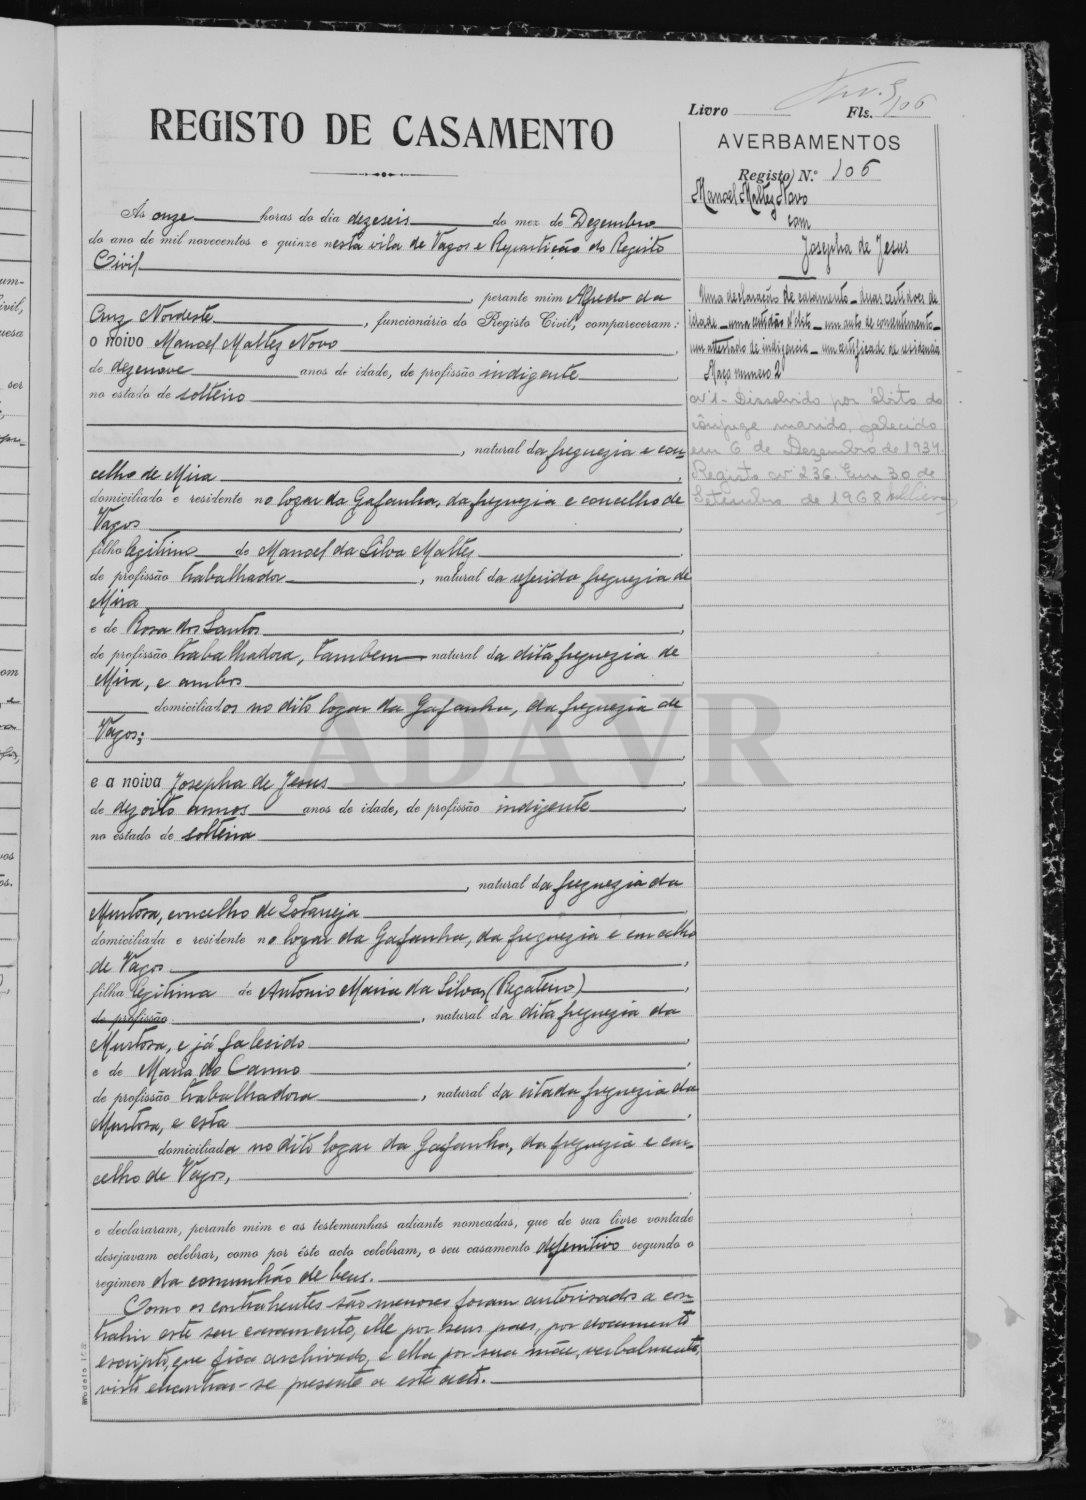 Livro Fls. 106
REGISTO DE CASAMENTO
AVERBAMENTOS
Registo N.º 106
Manoel Maltez Novo
com
Josepha de Jesus
Uma declaração de casamento _ duas certidoes de
idade _ uma certidão d'obito _ um auto de consentimento _
um attestado de indigencia _ um certificado de residencia
Maço numero 2
Nº 1 - Dissolvido por óbito do
cônjuge marido, falecido
em 6 de Dezembro de 1934.
Registo nº 236. Em 30 de
Setembro de 1968
As onze horas do dia dezeseis do mez de Dezembro
do ano de mil novecentos e quinze nesta vila de Vagos e Repartição do Registo
Civil
, perante mim Alfredo da
Cruz Nordeste, funcionário do Registo Civil, compareceram:
o noivo Manoel Maltez Novo
de dezenove anos de idade, de profissão indigente,
no estado de solteiro
, natural da freguezia e con-
celho de Mira,
domiciliado e residente no logar da Gafanha, da freguezia e concelho de
Vagos,
filho legitimo de Manoel da Silva Maltez,
de profissão trabalhador, natural da referida freguezia de
Mira,
e de Rosa dos Santos,
de profissão trabalhadora, tambem natural da dita freguezia de
Mira, e ambos
domiciliados no dito logar da Gafanha, da freguezia de
Vagos;
ADAVR
e a noiva Josepha de Jesus,
de dezoito annos anos de idade, de profissão indigente,
no estado de solteira
, natural da freguezia da
Murtosa, concelho de Estarreja,
domiciliada e residente no logar da Gafanha, da freguezia e concelho
de Vagos,
filha legitima de Antonio Maria da Silva, (Regateiro),
de profissão, natural da dita freguezia da
Murtosa, e já falecido,
e de Maria do Carmo,
de profissão trabalhadora, natural da citada freguezia da
Murtosa, e esta,
domiciliada no dito logar da Gafanha, da freguezia e con-
celho de Vagos,
e declararam, perante mim e as testemunhas adiante nomeadas, que de sua livre vontade
desejavam celebrar, como por êste acto celebram, o seu casamento defenitivo segundo o
regimen da comunhão de bens.
Como os contrahentes são menores foram autorisados a con-
trahir este seu casamento, elle por seus paes, por documento
escripto, que fica archivado, e ella por sua mãe, verbalmente,
visto encontrar-se presente a este acto.